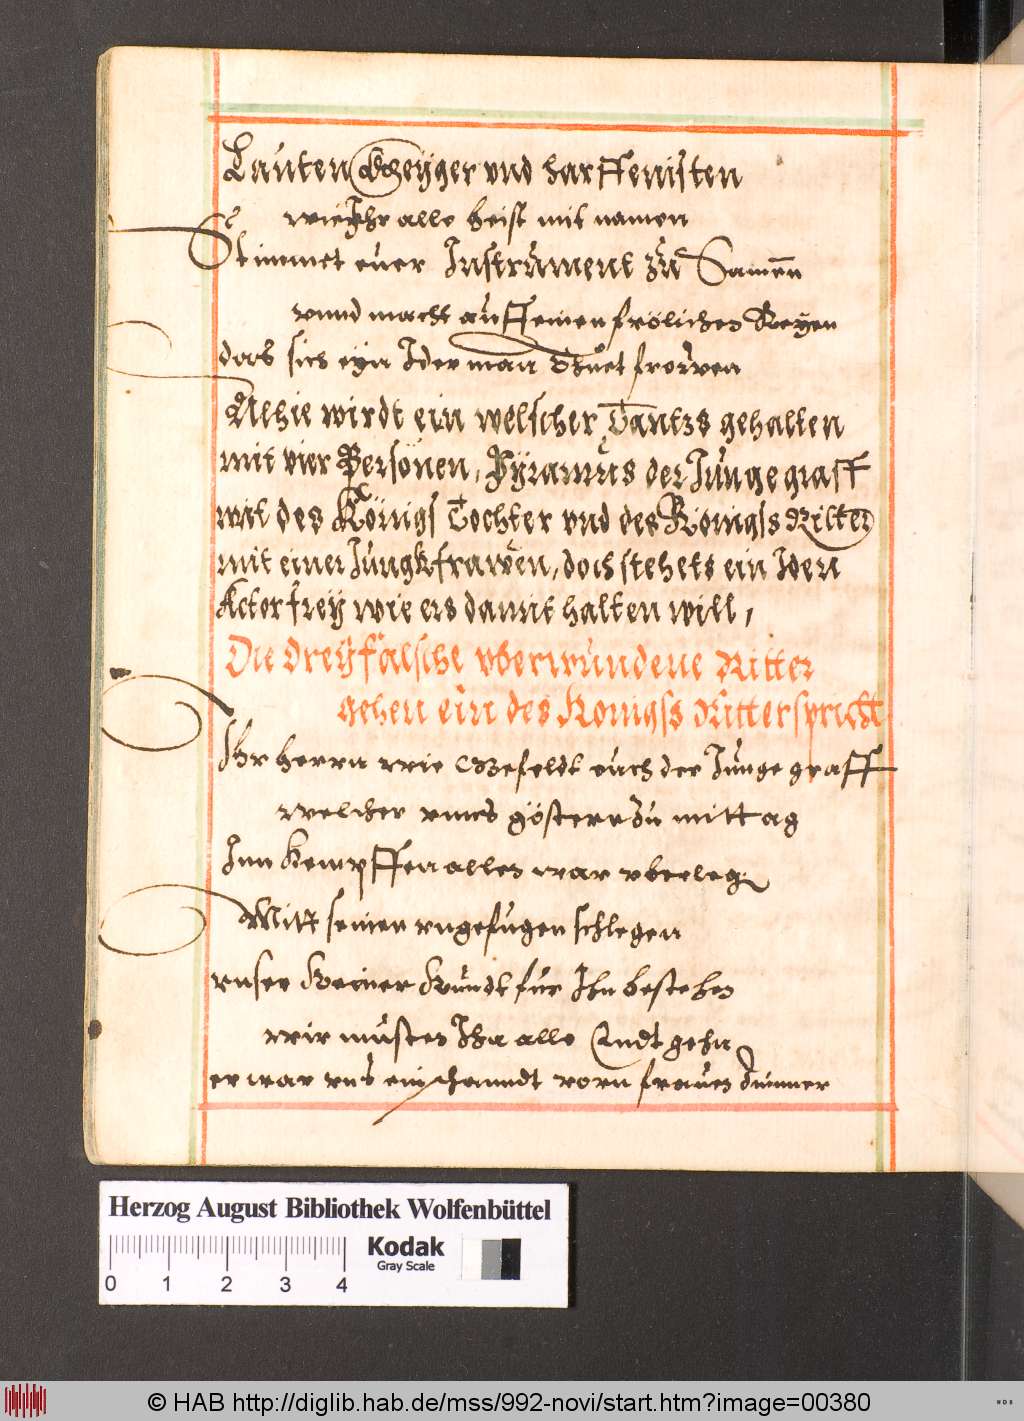 Lauten Geÿger vnd harffenisten
wie Ihr alle heist mit namen
Stimmet euer Instrument zů Samenn
vnnd macht auff einen frölichen Reyen
das sich eyn Iderman thuet frewen
Alhie wirdt ein welscher Tantzs gehalten
mit vier Personen, Pÿramus der Junge graff
mit des Königs Tochter vnd des Konigss Ritter
mit einer Jungkfrawen, doch stehets ein Iden
Actor freÿ wie ers damit halten will,
Die dreÿ falsche vberwundene Ritter
gehen ein des Konigss Ritter spricht
Ihr herrn wie Gefeldt euch der Junge graff
welcher vnns göstern zu mittag
Inn Kempffen allen war vberleg
Mitt seinen vngefugen schlegen
vnser Keiner Kundt für Ihn bestehen
wir musten Ihn alle Endt gehn
er war vns ein schanndt vorn frauen Zimmer
Herzog August Bibliothek Wolfenbüttel
Kodak
Gray Scale
0 1 2 3 4
© HAB http://diglib.hab.de/mss/992-novi/start.htm?image=00380